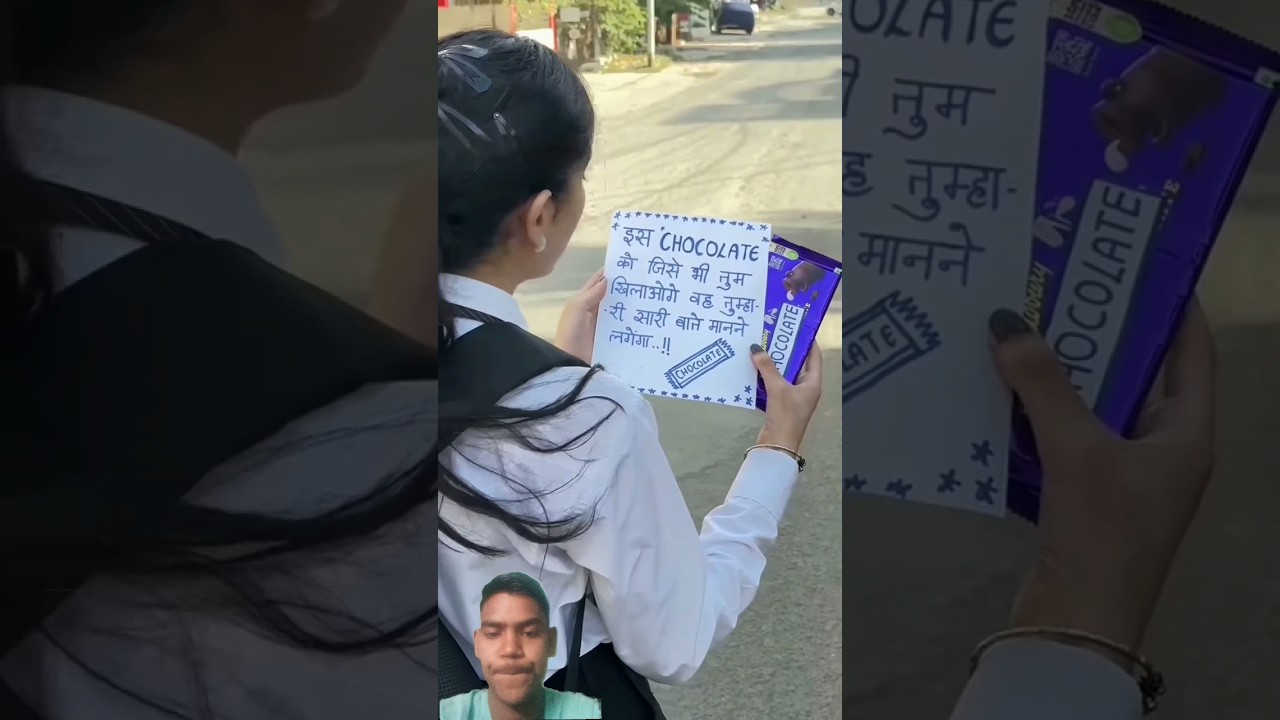 इस "CHOCOLATE
को जिसे भी तुम
खिलाओगे वह तुम्हा-
-री सारी बाते मानने
लगेगा..!!
CHOCOLATE
CHOCOLATE